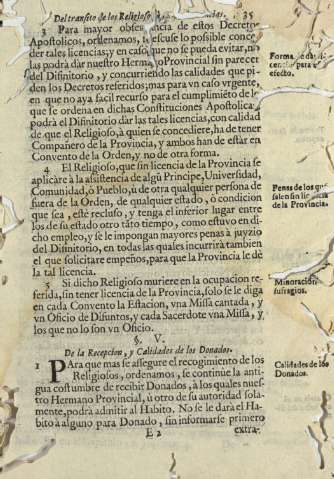 Del transito de los Religiosos, 35
3 Para mayor observancia de estos Decretos
Apostolicos, ordenamos, se escuse lo posible conce-
der tales licencias; y en caso, que no se pueda evitar, no
las podrà dàr nuestro Hermano Provincial sin parecer
del Difinitorio, y concurriendo las calidades que pi-
den los Decretos referidos; mas para vn caso vrgente,
en que no aya facil recurso para el cumplimiẽto de lo
que se ordena en dichas Constituciones Apostolicas,
podrà el Difinitorio dàr las tales licencias, con calidad
de que el Religioso, à quien se concediere, ha de tener
Compañero de la Provincia, y ambos han de estàr en
Convento de la Orden, y no de otra forma.
4 El Religioso, que sin licencia de la Provincia se
aplicare à la assistencia de algũ Principe, Vniversidad,
Comunidad, ò Pueblo, ù de otra qualquier persona de
fuera de la Orden, de qualquier estado, ò condicion
que sea, estè recluso, y tenga el inferior lugar entre
los de su estado otro tãto tiempo, como estuvo en di-
cho empleo, y se le impongan mayores penas à juyzio
del Difinitorio, en todas las quales incurrirà tambien
el que solicitare empeños, para que la Provincia le dè
la tal licencia.
5 Si dicho Religioso muriere en la ocupacion re-
ferida, sin tener licencia de la Provincia, solo se le diga
en cada Convento la Estacion, vna Missa cantada, y
vn Oficio de Difuntos, y cada Sacerdote vna Missa, y
los que no lo son vn Oficio.
§. V.
De la Recepcion, y Calidades de los Donados.
1 Para que mas se assegure el recogimiento de los
Religiosos, ordenamos, se continue la anti-
gua costumbre de recibir Donados, à los quales nues-
tro Hermano Provincial, ù otro de su autoridad sola-
mente, podrà admitir al Habito. No se le darà el Ha-
bito à alguno para Donado, sin informarse primero
E 2 extra-
Forma de
para
efecto.
Penas de los que
salen sin licencia
de la Provincia.
Minoracion
sufragios.
Calidades de los
Donados.